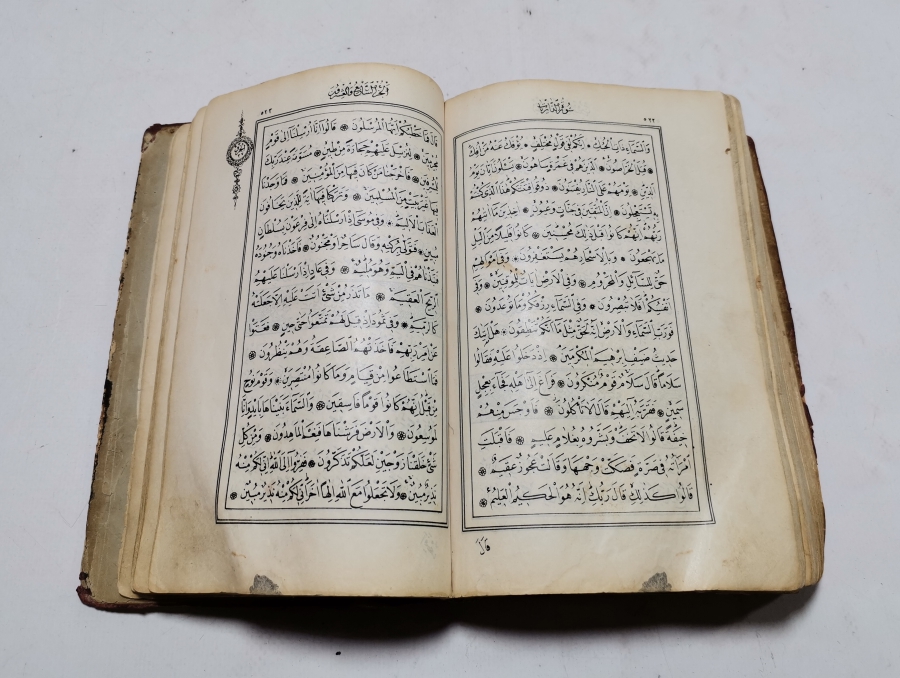 سورة الذاريات
٥٢٢
وَالسَّمَاءِ ذَاتِ الْحُبُكِ ۞ اِنَّكُمْ لَفِى قَوْلٍ مُخْتَلِفٍ ۞ يُؤْفَكُ عَنْهُ مَنْ اُفِكَ
قُتِلَ الْخَرَّاصُونَ ۞ اَلَّذِينَ هُمْ فِى غَمْرَةٍ سَاهُونَ ۞ يَسْئَلُونَ اَيَّانَ يَوْمُ
الدِّينِ ۞ يَوْمَ هُمْ عَلَى النَّارِ يُفْتَنُونَ ۞ ذُوقُوا فِتْنَتَكُمْ هٰذَا الَّذِى كُنْتُمْ
بِهِ تَسْتَعْجِلُونَ ۞ اِنَّ الْمُتَّقِينَ فِى جَنَّاتٍ وَعُيُونٍ ۞ اٰخِذِينَ مَا اٰتٰيهُمْ
رَبُّهُمْ اِنَّهُمْ كَانُوا قَبْلَ ذٰلِكَ مُحْسِنِينَ ۞ كَانُوا قَلِيلًا مِنَ الَّيْلِ
مَا يَهْجَعُونَ ۞ وَبِالْاَسْحَارِ هُمْ يَسْتَغْفِرُونَ ۞ وَفِى اَمْوَالِهِمْ
حَقٌّ لِلسَّائِلِ وَالْمَحْرُومِ ۞ وَفِى الْاَرْضِ اٰيَاتٌ لِلْمُوقِنِينَ ۞ وَفِى
اَنْفُسِكُمْ اَفَلَا تُبْصِرُونَ ۞ وَفِى السَّمَاءِ رِزْقُكُمْ وَمَا تُوعَدُونَ ۞
فَوَرَبِّ السَّمَاءِ وَالْاَرْضِ اِنَّهُ لَحَقٌّ مِثْلَ مَا اَنَّكُمْ تَنْطِقُونَ ۞ هَلْ اَتٰيكَ
حَدِيثُ ضَيْفِ اِبْرٰهِيمَ الْمُكْرَمِينَ ۞ اِذْ دَخَلُوا عَلَيْهِ فَقَالُوا
سَلَامًا قَالَ سَلَامٌ قَوْمٌ مُنْكَرُونَ ۞ فَرَاغَ اِلٰى اَهْلِهِ فَجَاءَ بِعِجْلٍ
سَمِينٍ ۞ فَقَرَّبَهُ اِلَيْهِمْ قَالَ اَلَا تَأْكُلُونَ ۞ فَاَوْجَسَ مِنْهُمْ
خِيفَةً قَالُوا لَا تَخَفْ وَبَشَّرُوهُ بِغُلَامٍ عَلِيمٍ ۞ فَاَقْبَلَتِ
امْرَاَتُهُ فِى صَرَّةٍ فَصَكَّتْ وَجْهَهَا وَقَالَتْ عَجُوزٌ عَقِيمٌ ۞
قَالُوا كَذٰلِكِ قَالَ رَبُّكِ اِنَّهُ هُوَ الْحَكِيمُ الْعَلِيمُ ۞
قَالَ
الجزء السابع والعشرون
٥٢٣
قَالَ فَمَا خَطْبُكُمْ اَيُّهَا الْمُرْسَلُونَ ۞ قَالُوا اِنَّا اُرْسِلْنَا اِلٰى قَوْمٍ
مُجْرِمِينَ ۞ لِنُرْسِلَ عَلَيْهِمْ حِجَارَةً مِنْ طِينٍ ۞ مُسَوَّمَةً عِنْدَ رَبِّكَ
لِلْمُسْرِفِينَ ۞ فَاَخْرَجْنَا مَنْ كَانَ فِيهَا مِنَ الْمُؤْمِنِينَ ۞ فَمَا وَجَدْنَا
فِيهَا غَيْرَ بَيْتٍ مِنَ الْمُسْلِمِينَ ۞ وَتَرَكْنَا فِيهَا اٰيَةً لِلَّذِينَ يَخَافُونَ
الْعَذَابَ الْاَلِيمَ ۞ وَفِى مُوسٰى اِذْ اَرْسَلْنَاهُ اِلٰى فِرْعَوْنَ بِسُلْطَانٍ
مُبِينٍ ۞ فَتَوَلّٰى بِرُكْنِهِ وَقَالَ سَاحِرٌ اَوْ مَجْنُونٌ ۞ فَاَخَذْنَاهُ وَجُنُودَهُ
فَنَبَذْنَاهُمْ فِى الْيَمِّ وَهُوَ مُلِيمٌ ۞ وَفِى عَادٍ اِذْ اَرْسَلْنَا عَلَيْهِمُ
الرِّيحَ الْعَقِيمَ ۞ مَا تَذَرُ مِنْ شَىْءٍ اَتَتْ عَلَيْهِ اِلَّا جَعَلَتْهُ
كَالرَّمِيمِ ۞ وَفِى ثَمُودَ اِذْ قِيلَ لَهُمْ تَمَتَّعُوا حَتّٰى حِينٍ ۞ فَعَتَوْا
عَنْ اَمْرِ رَبِّهِمْ فَاَخَذَتْهُمُ الصَّاعِقَةُ وَهُمْ يَنْظُرُونَ ۞
فَمَا اسْتَطَاعُوا مِنْ قِيَامٍ وَمَا كَانُوا مُنْتَصِرِينَ ۞ وَقَوْمَ نُوحٍ
مِنْ قَبْلُ اِنَّهُمْ كَانُوا قَوْمًا فَاسِقِينَ ۞ وَالسَّمَاءَ بَنَيْنَاهَا بِاَيْدٍ وَاِنَّا
لَمُوسِعُونَ ۞ وَالْاَرْضَ فَرَشْنَاهَا فَنِعْمَ الْمَاهِدُونَ ۞ وَمِنْ كُلِّ
شَىْءٍ خَلَقْنَا زَوْجَيْنِ لَعَلَّكُمْ تَذَكَّرُونَ ۞ فَفِرُّوا اِلَى اللّٰهِ اِنِّى لَكُمْ مِنْهُ
نَذِيرٌ مُبِينٌ ۞ وَلَا تَجْعَلُوا مَعَ اللّٰهِ اِلٰهًا اٰخَرَ اِنِّى لَكُمْ مِنْهُ نَذِيرٌ مُبِينٌ ۞